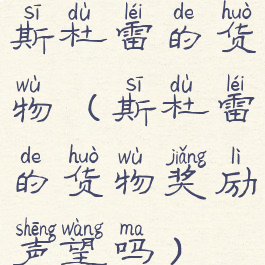 sī dù léi de huò
斯杜雷的货
wù sī dù léi
物（斯杜雷
de huò wù jiǎng lì
的货物奖励
shēng wàng ma
声望吗）